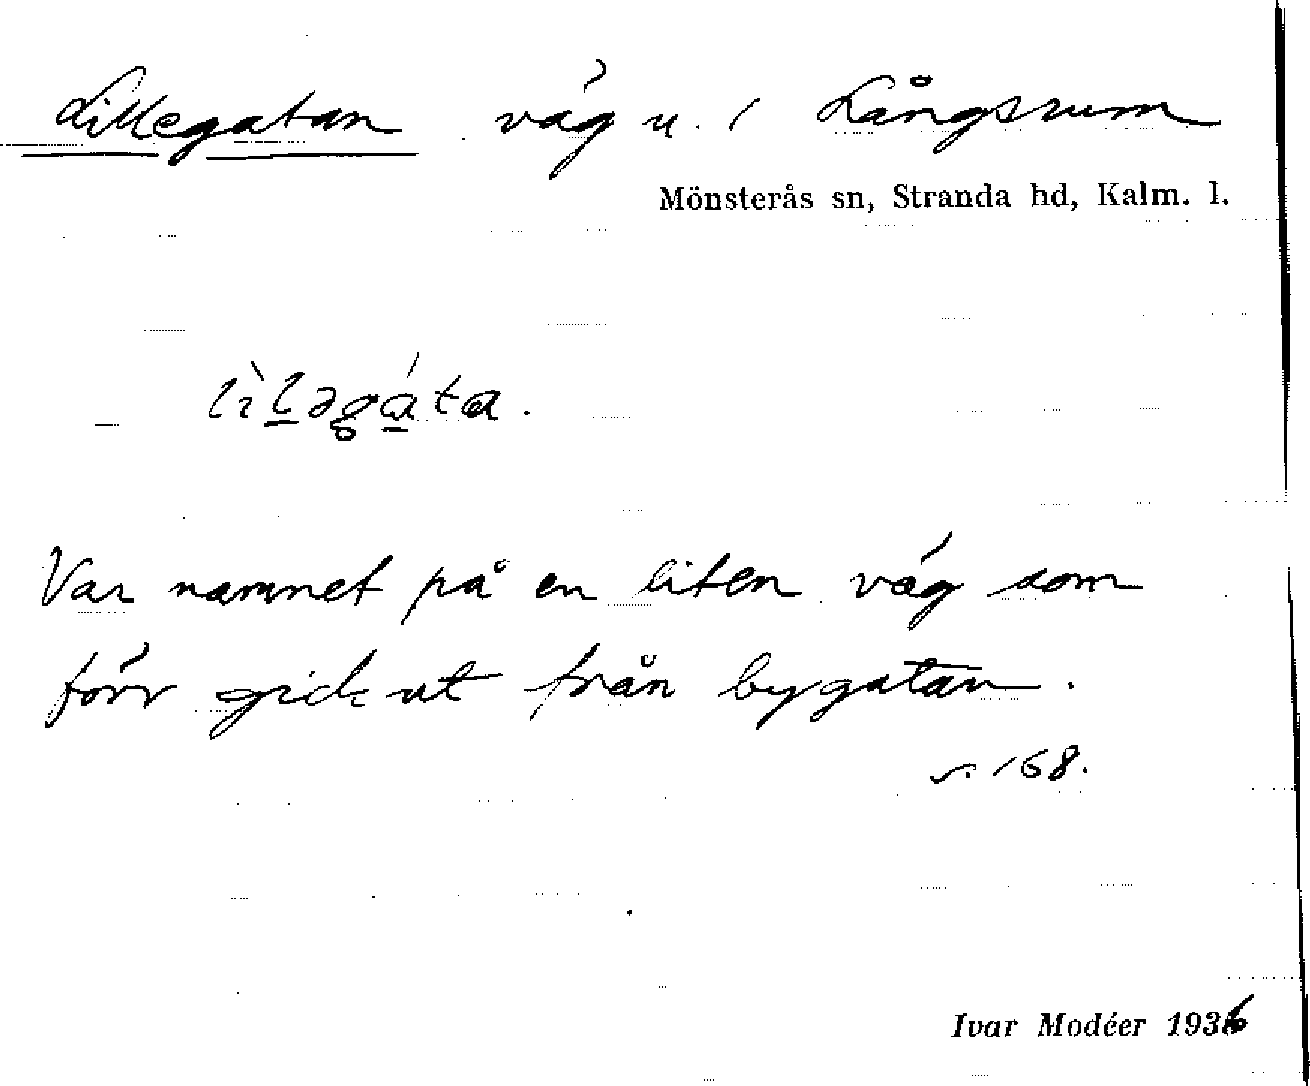 Lillegatan väg u. i Långsrum
Mönsterås sn, Stranda hd, Kalm. l.
lìlǝgáta.
Var namnet på en liten väg som
förr gick ut från bygatan.
s. 168.
Ivar Modéer 1936